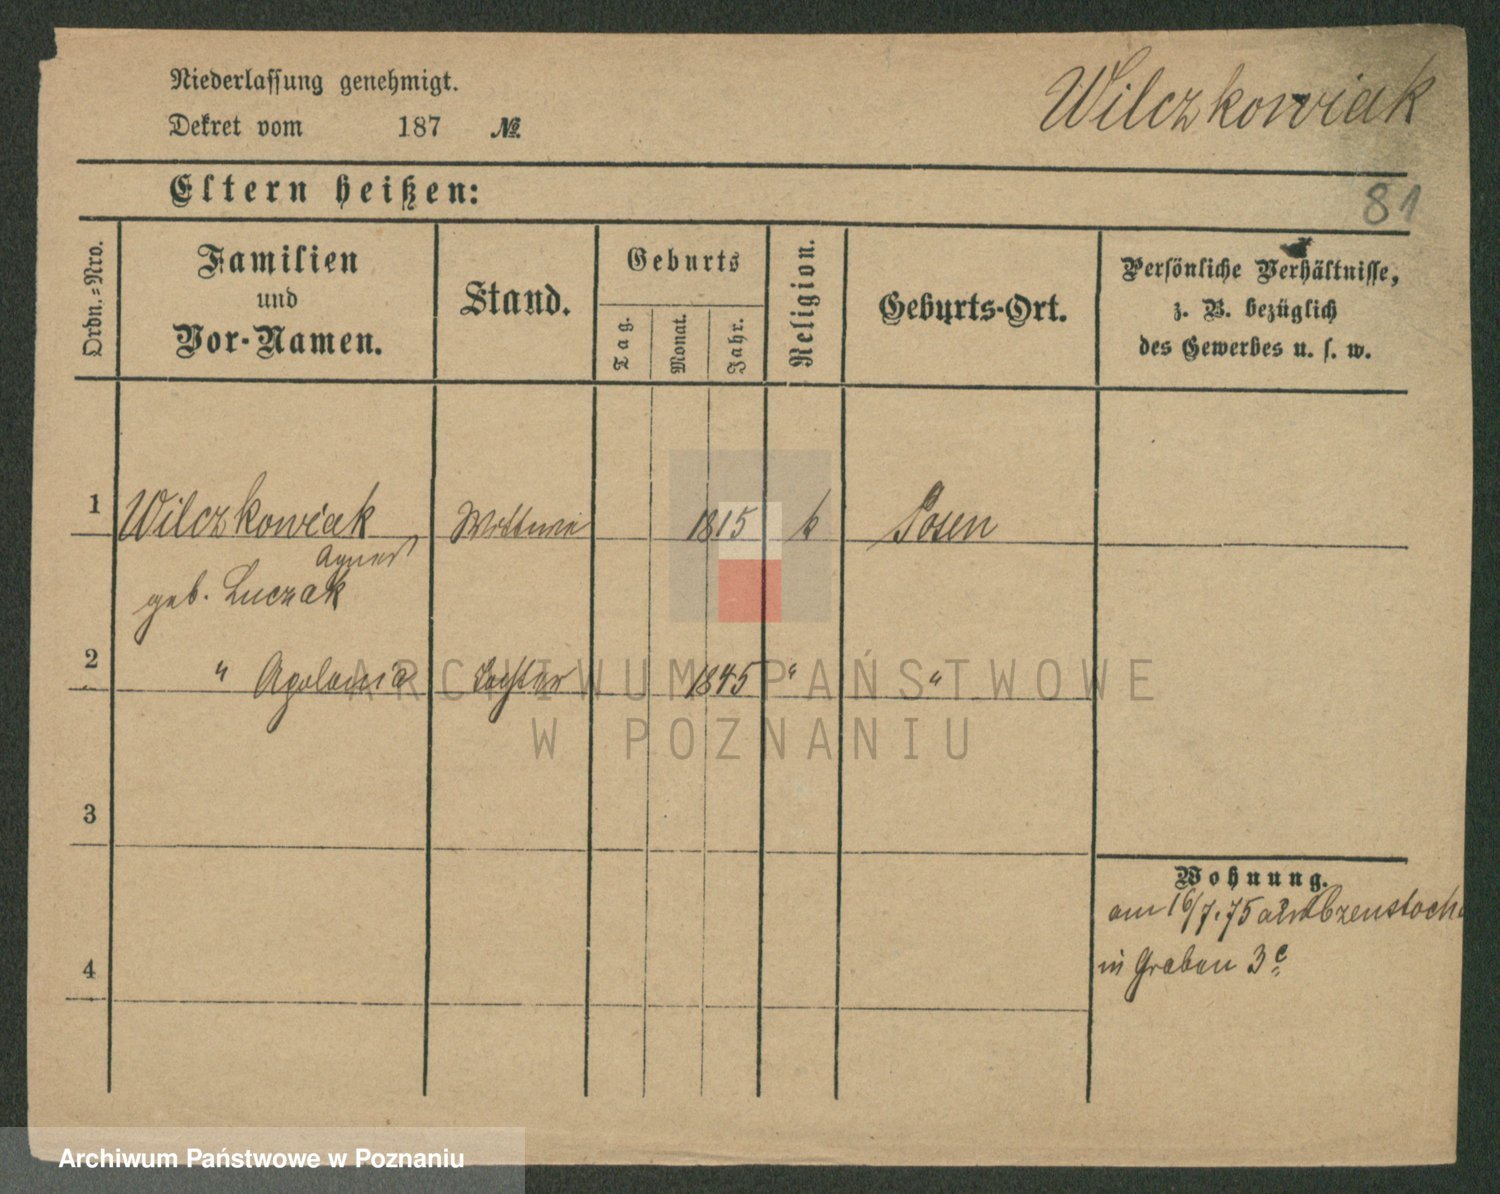 Niederlassung genehmigt.
Dekret vom 187 №.
Wilczkowiak
Eltern heißen:
81
Ordn.-Nro.
Familien
und
Vor-Namen.
Stand.
Geburts
Tag.
Monat.
Jahr.
Religion.
Geburts-Ort.
Persönliche Verhältnisse,
z. B. bezüglich
des Gewerbes u. s. w.
1 Wilczkowiak Wittwe 1815 k Posen
Agnes
geb. Luczak
2 " Apolonia Tochter 1845 " "
ARCHIWUM PAŃSTWOWE
W POZNANIU
3
Wohnung.
am 16/7.75 Czenstoch
in Graben 3c
4
Archiwum Państwowe w Poznaniu